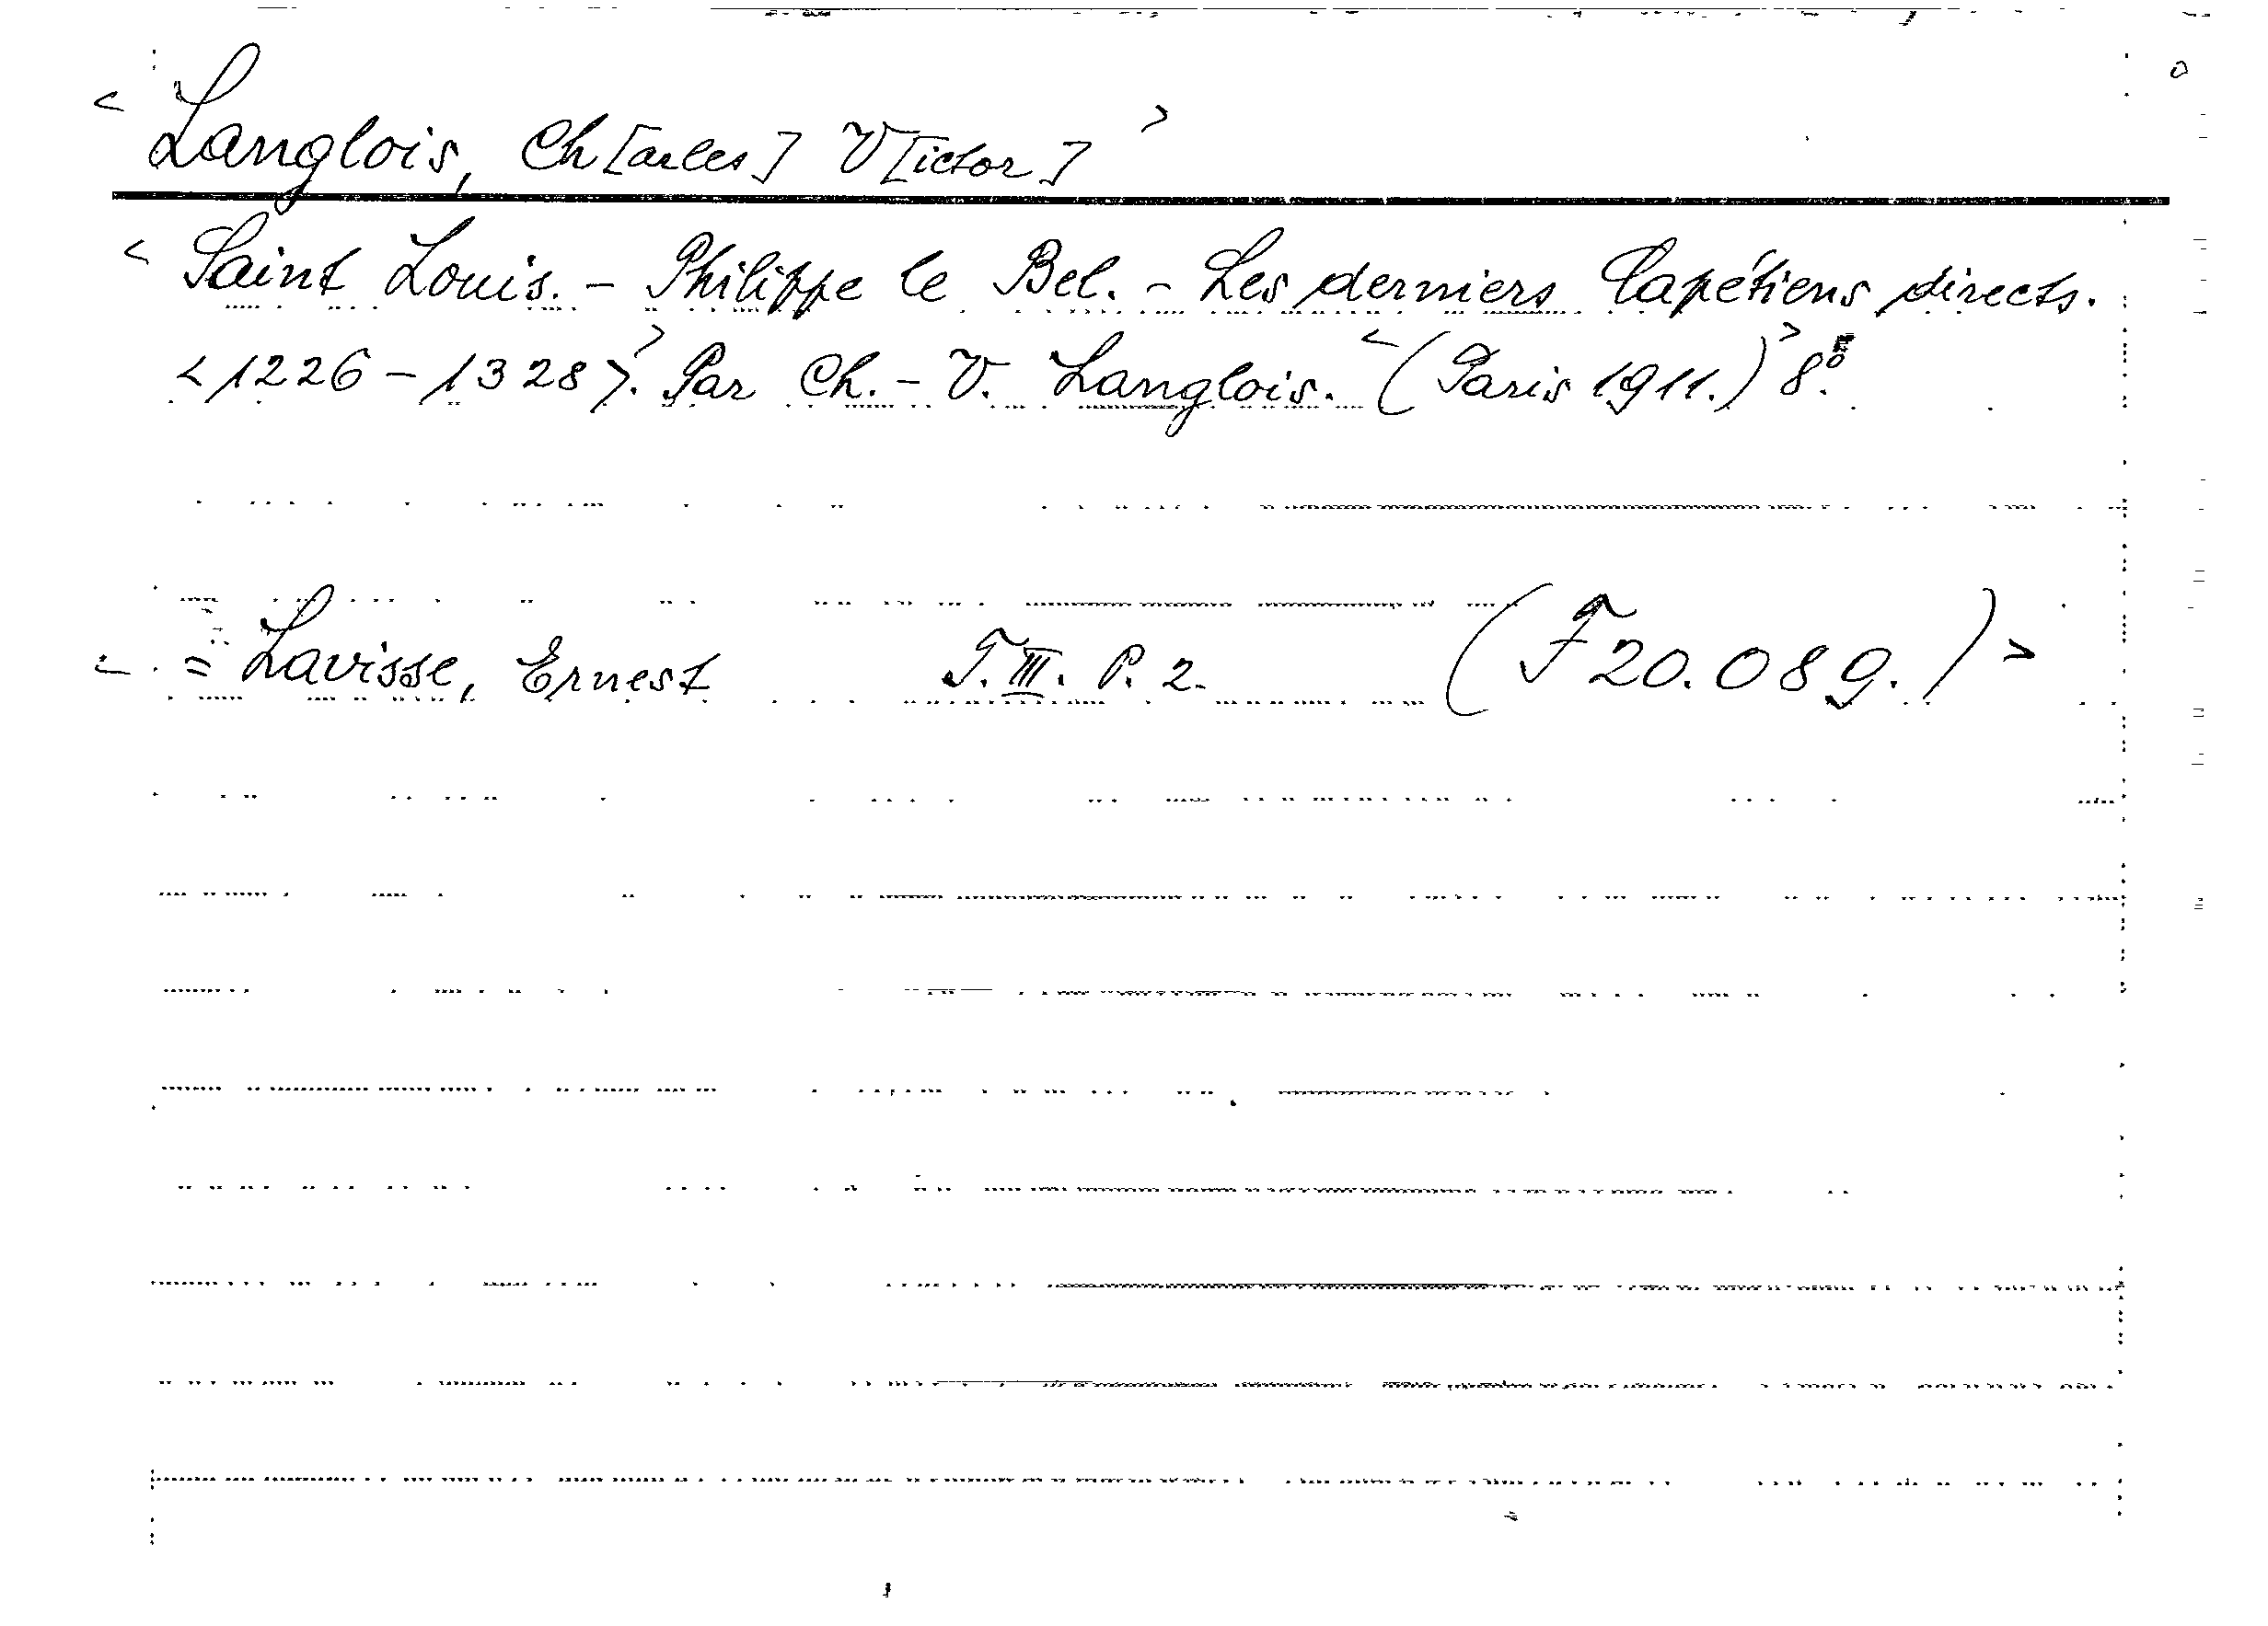 < Langlois, Ch[arles] V[ictor] >
< Saint Louis. - Philippe le Bel. - Les derniers Capétiens directs.
<1226-1328>.> Par Ch.-V. Langlois. <(Paris 1911.)> 8°.
< = Lavisse, Ernest T. III. P. 2. (F 20.089.) >